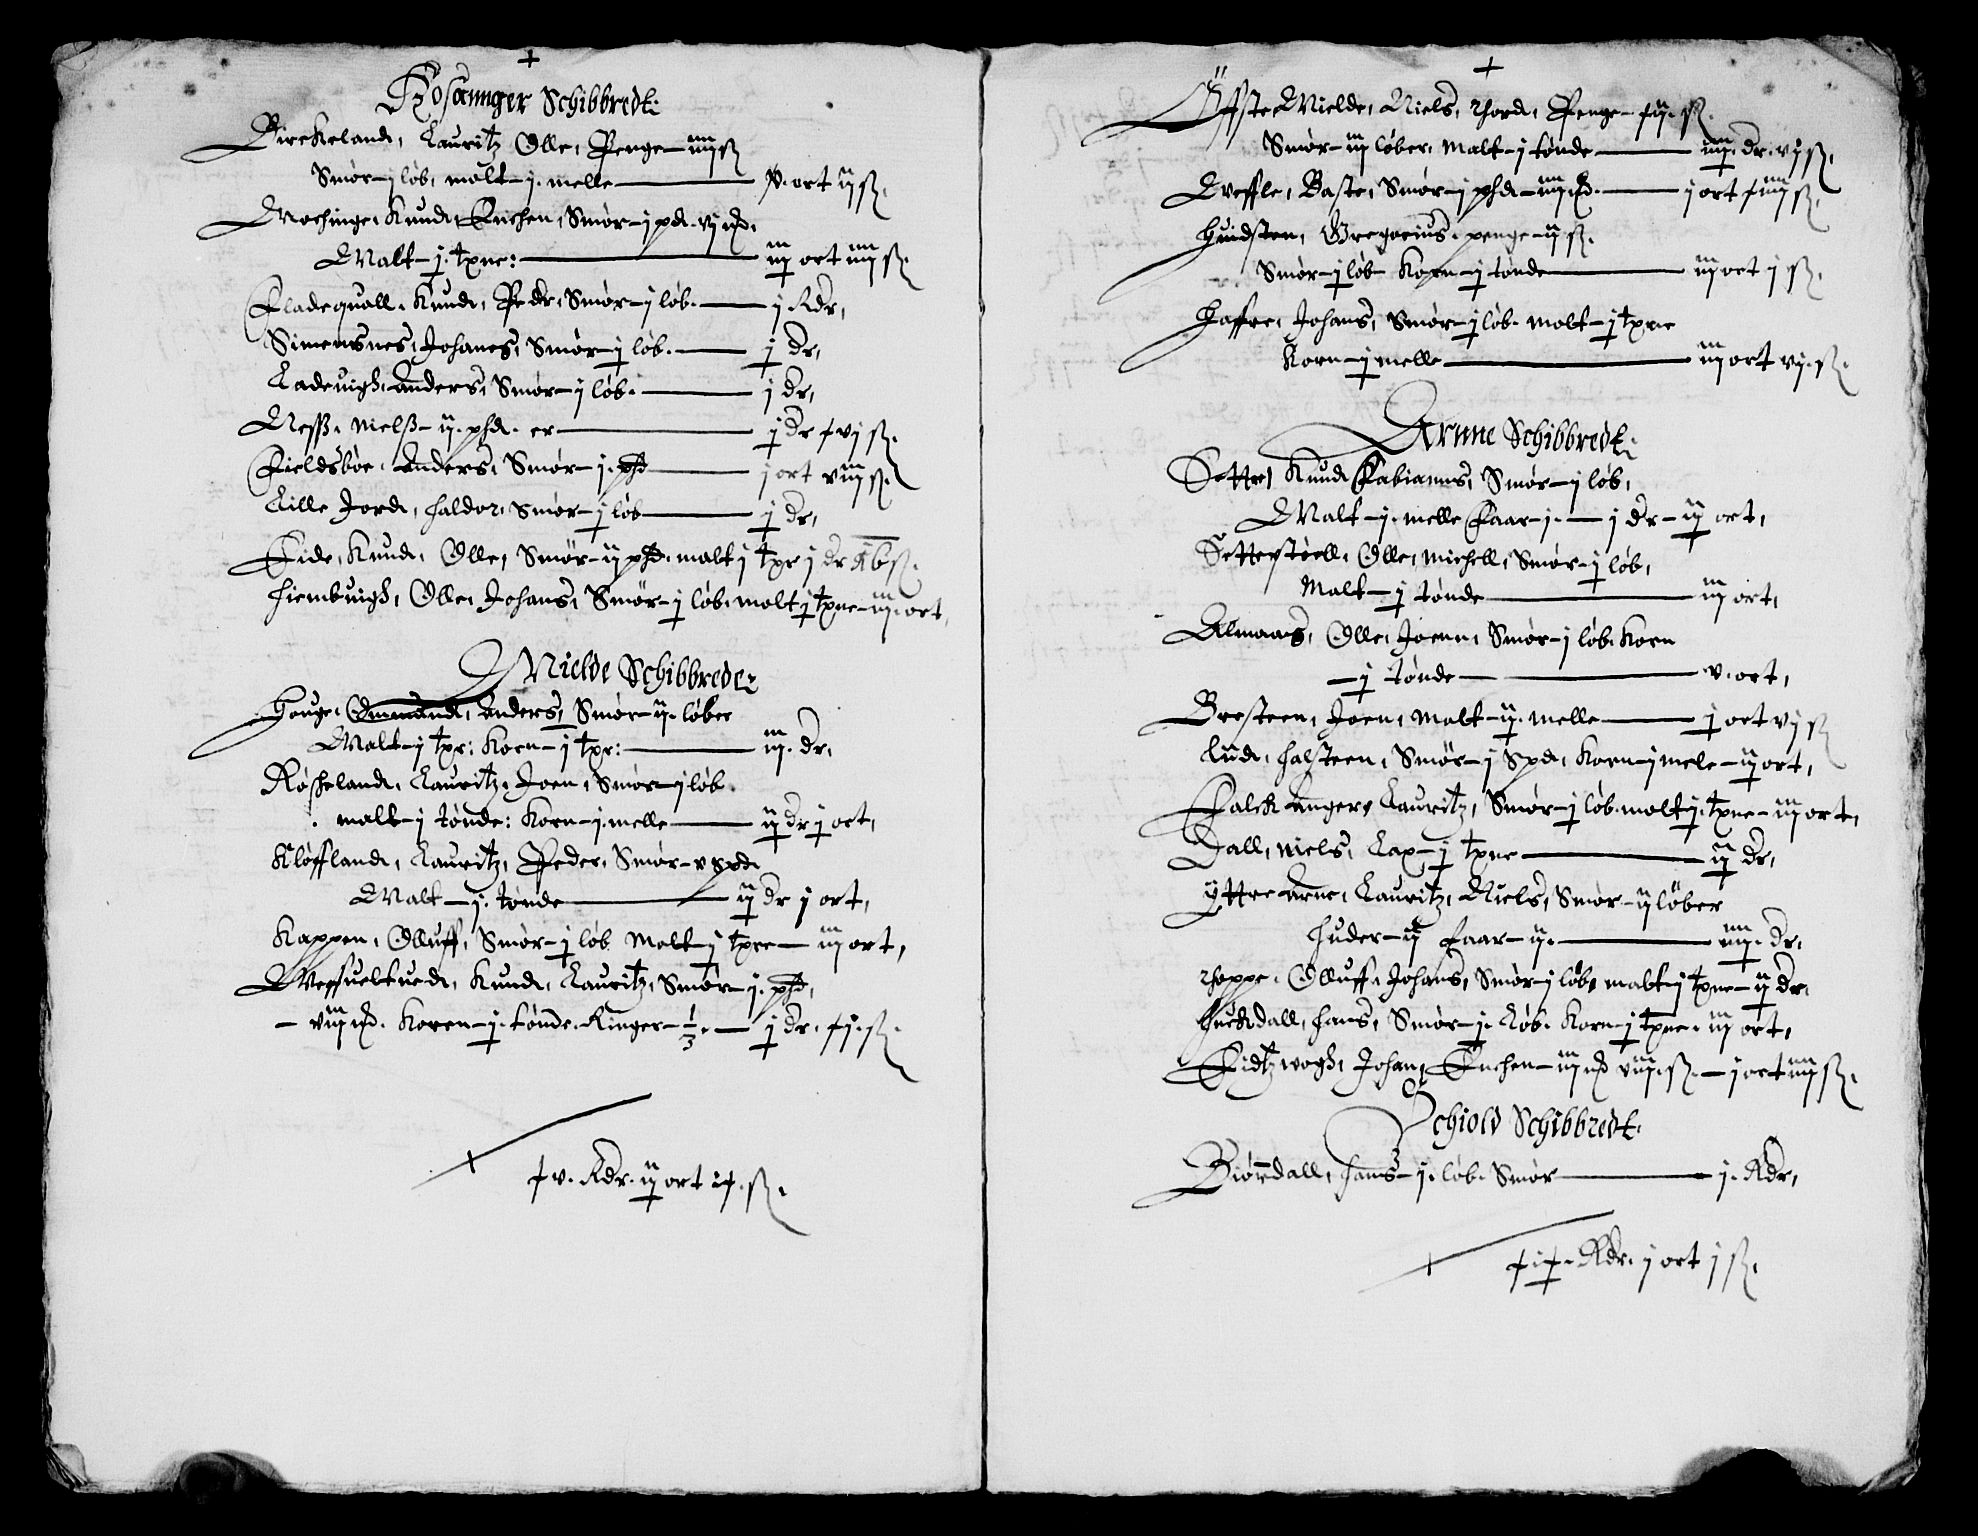 Rosannger Schibbredt:
Birckeland, Lauritz Olle, Penge – iiij ß
Smør – j løb, malt – j melle — ort ij ß.
Mochinge, Knud, Erichen, Smør – j pd. vj
Malt – j tpne: — iij ort iiij ß.
Fladequall, Knud, Peder, Smør – j løb. — j Rdr,
Simensnes, Johanes, Smør – j løb. — j dr,
Ladeuigh, Anders, Smør – j løb. — j dr,
Ness, Nielss – ij phd. er — j dr vj ß.
Fieldsbøe, Anders, Smør – j phd — j ort viij ß.
Lille Jord, Haldor, Smør – j løb — j dr,
Eide, Knud, Olle, Smør – ij phd. malt j tpne j dr
Hiembuigh, Olle, Johans, Smør – j løb. malt j tpne – iij ort,
Mielde Schibbrede:
Houge, Ommund, Anders, Smør – ij løber
Malt – j tpne: Korn – j tpne: — iij dr,
Røsseland, Lauritz, Joen, Smør – j løb.
malt – j tønde: Korn – j melle — ij dr j ort,
Kløffland, Lauritz, Peder, Smør – v spd
Malt – j tønde — ij dr j ort,
Kappen, Olluff, Smør – j løb Malt – j tpne — iij ort,
Knud, Lauritz, Smør – j phd,
– viij Koren – j tønde. Ringer – 1/3. — j dr.
v. Rdr. ij ort
Øffste Mielde, Niels, Thord, Penge
Smør – iij løber, Malt – j tønde — iiij dr. vj ß.
Veffle, Baste, Smør – j phd – iiij — j ort
Huidsten, Gregorius, penge – ij ß.
Smør – j løb Korn – j tønde — iij ort j ß.
Haffre, Johans, Smør – j løb. Malt – j tpne
Korn – j melle — iij ort vj ß.
Arnne Schibbredt:
Settre, Knud Fabianus, Smør – j løb,
Malt – j melle Faar – j — j dr – ij ort,
Setterstøell, Olle, Michell, Smør – j løb,
Malt – j tønde — iij ort,
Almaas, Olle, Joenn, Smør – j løb. Korn
– j tønde — v. ort,
Bresteen, Joen, Malt – ij melle — j ort vj ß
Lund, Halsteen, Smør – j Spd, Korn – j mele – ij ort,
Falck anger, Lauritz, Smør – j løb. malt j tpne – iij ort,
Dall, Niels, Lax – j tpne — ij dr,
Yttre Arne, Lauritz, Niels, Smør – ij løber
Huder – ij Faar – ij. — iiij dr.
Thoppe, Olluff, Johans, Smør – j løb, malt – j tpne – ij dr.
Huckdall, Hans, Smør – j Løb. Korn – j tpne. iij ort,
Eidtzwogh, Johan, Erichen – iij viij. ß. – j ort iiij ß.
Schiold Schibbredt.
Biørndall, Hans – j. løb. Smør — j. Rdr,
Rdr. j ort j ß.